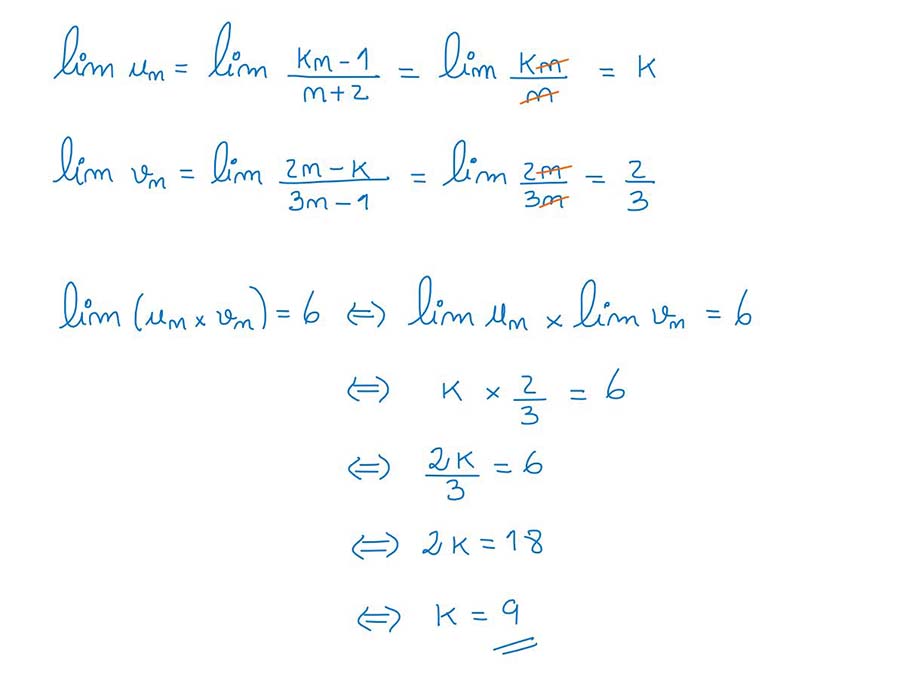 lim uₙ = lim (kn - 1)/(n + 2) = lim kn/n = k
lim vₙ = lim (2n - k)/(3n - 1) = lim 2n/3n = 2/3
lim (uₙ × vₙ) = 6 ⇔ lim uₙ × lim vₙ = 6
⇔ k × 2/3 = 6
⇔ 2k/3 = 6
⇔ 2k = 18
⇔ k = 9